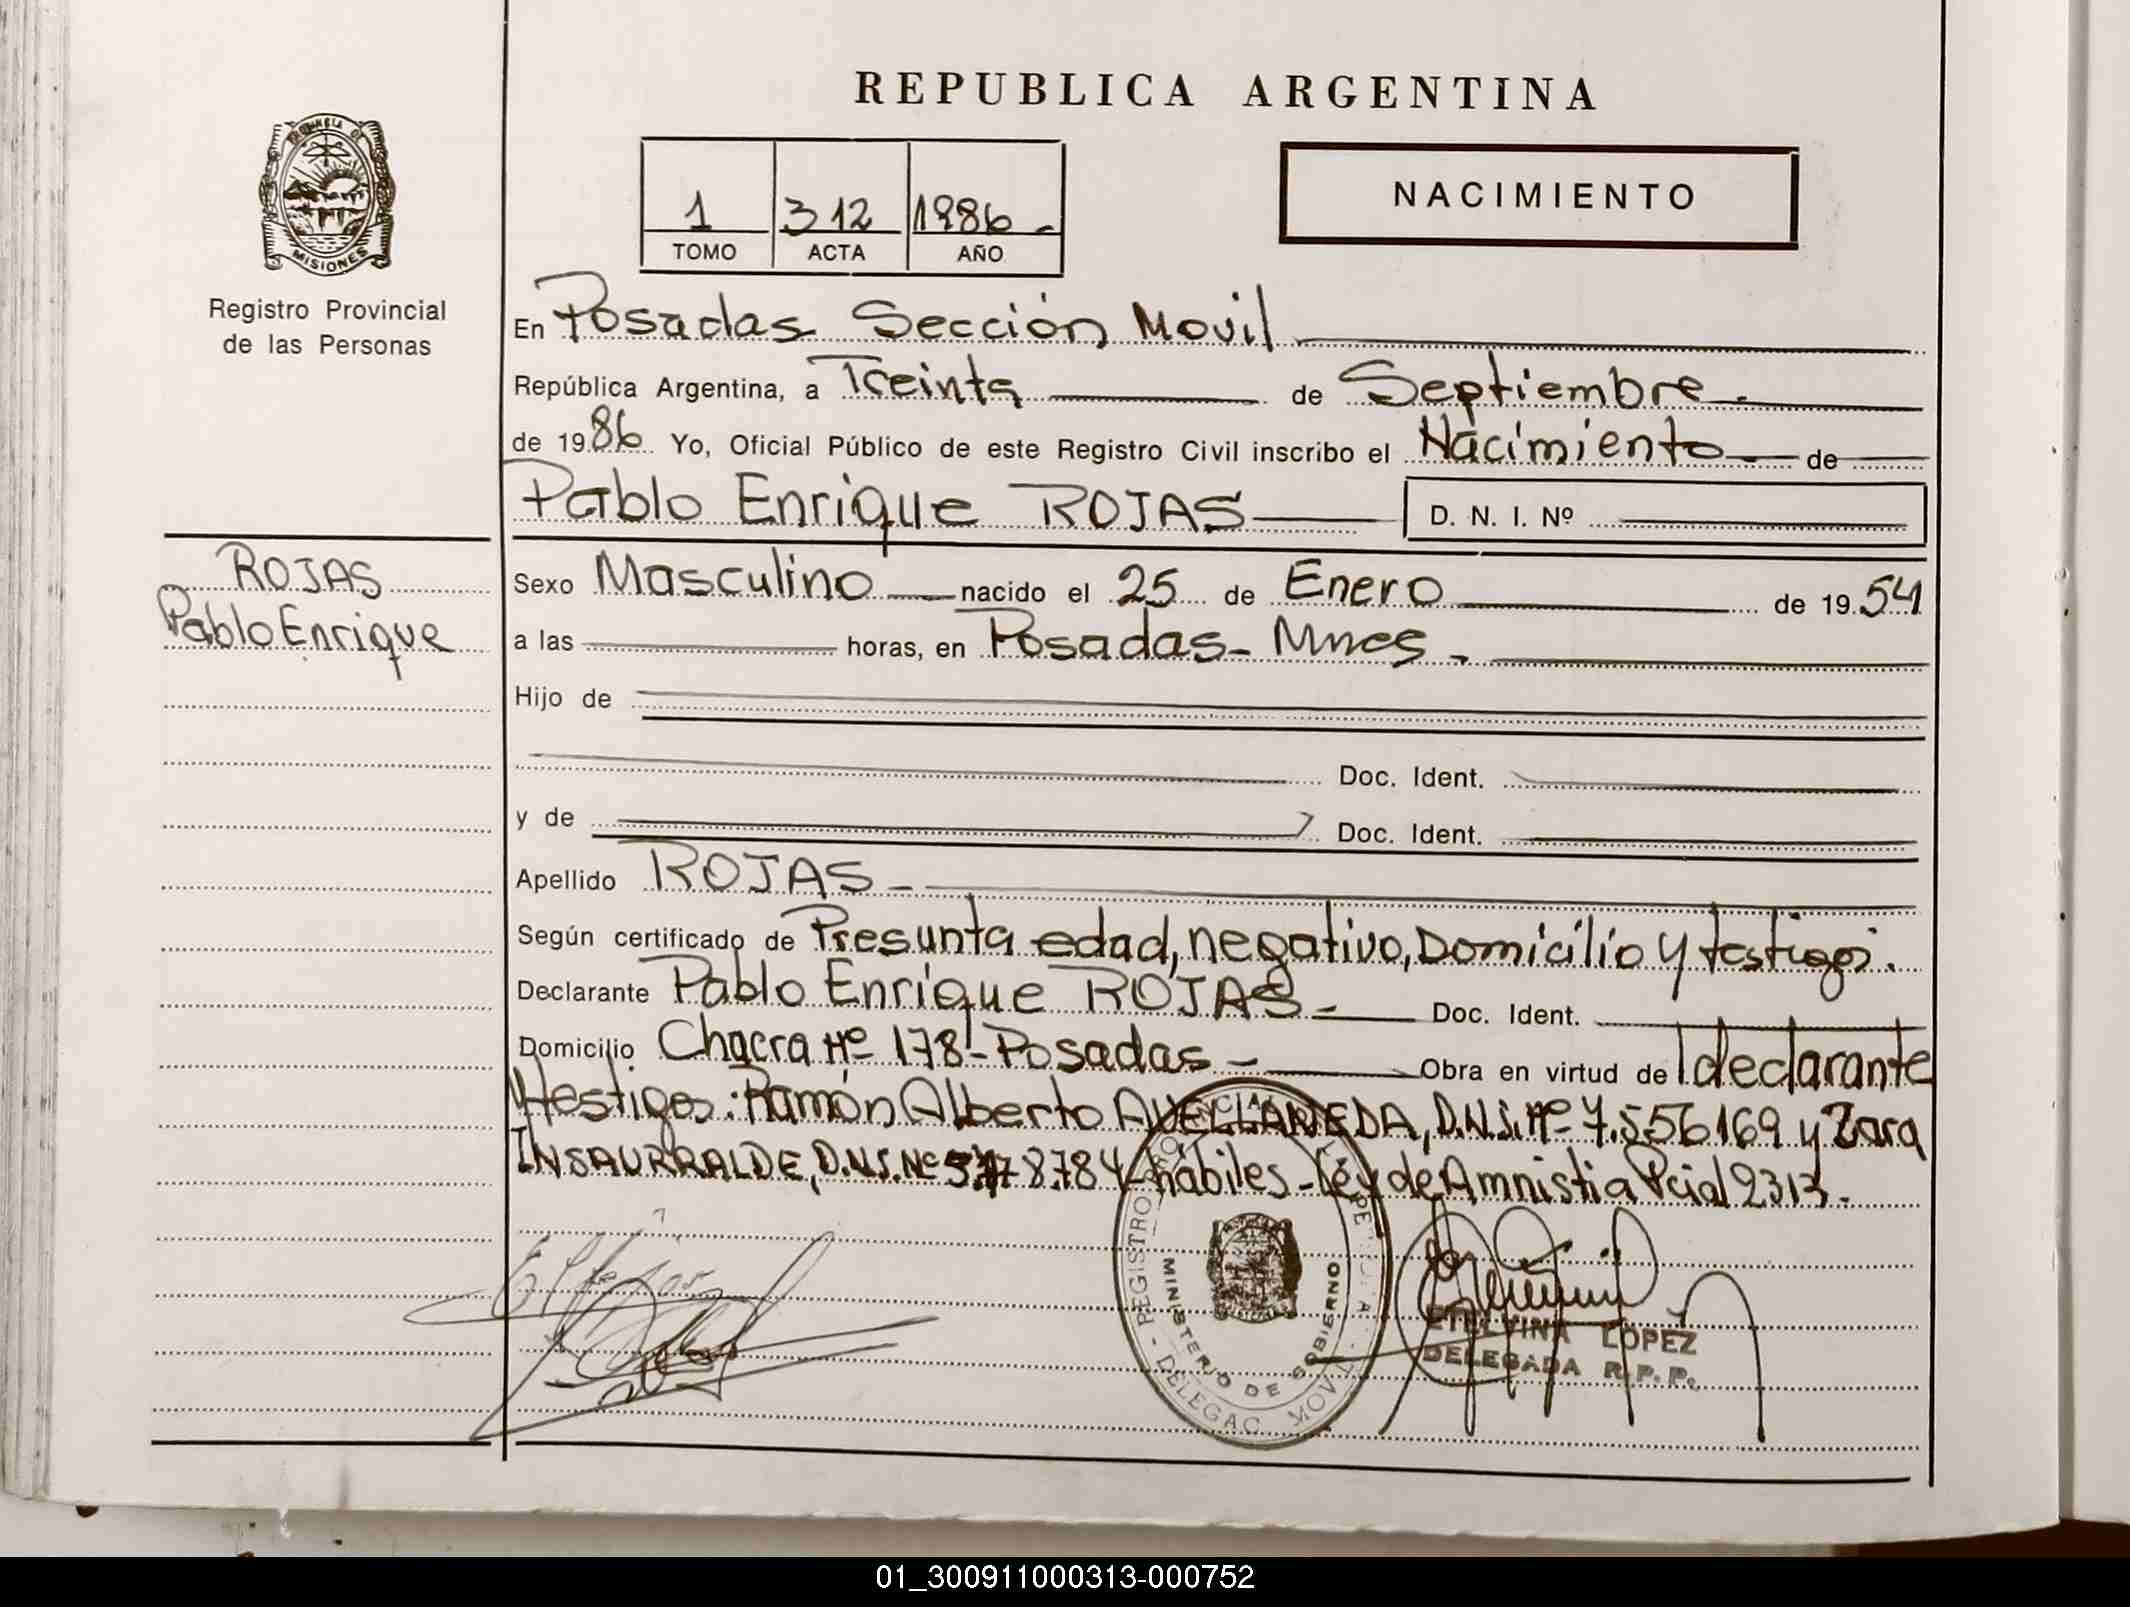 REPUBLICA ARGENTINA
PROVINCIA DE
MISIONES
Registro Provincial
de las Personas
1 312 1986
TOMO ACTA AÑO
NACIMIENTO
En Posadas Sección Movil
República Argentina, a Treinta de Septiembre.
de 1986 Yo, Oficial Público de este Registro Civil inscribo el Nacimiento de
Pablo Enrique ROJAS D. N. I. Nº
ROJAS
Pablo Enrique
Sexo Masculino nacido el 25 de Enero de 1954
a las horas, en Posadas - Mnes.
Hijo de
Doc. Ident.
y de Doc. Ident.
Apellido ROJAS
Según certificado de Presunta edad, negativo, Domicilio y testigos.
Declarante Pablo Enrique ROJAS Doc. Ident.
Domicilio Chacra Nº 178 - Posadas - Obra en virtud de declarante
y testigos: Ramón Alberto AVELLANEDA, D.N.I. Nº 7.556169 y Zara
INSAURRALDE, D.N.I. Nº 8.784 hábiles - Ley de Amnistia Pcial 2313.
REGISTRO
MINISTERIO DE GOBIERNO
DELEGAC. MOVIL
ETELVINA LOPEZ
DELEGADA R.P.P.
01_300911000313-000752